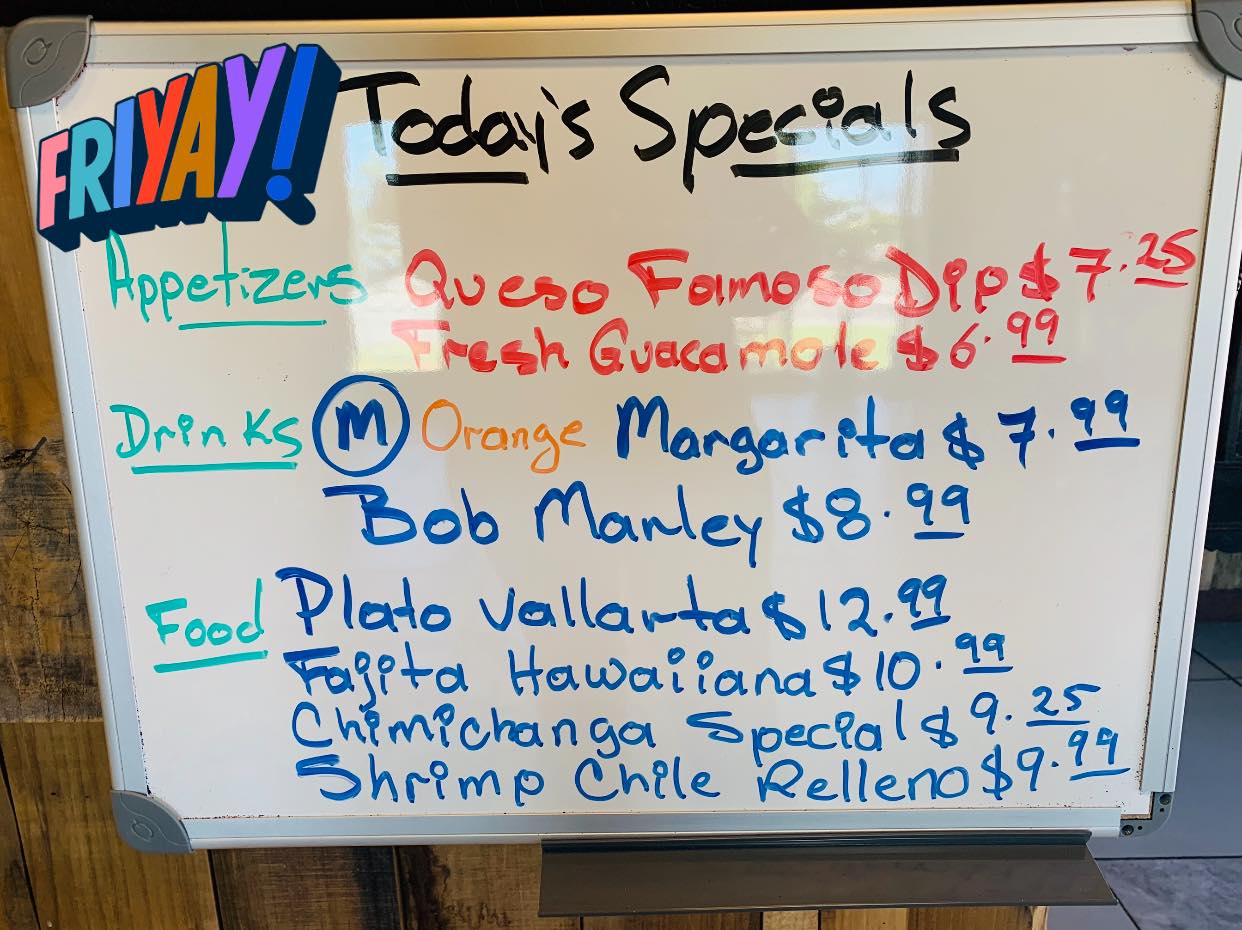 FRIYAY!
Today's Specials
Appetizers Queso Famoso Dip $7.25
Fresh Guacamole $6.99
Drinks M Orange Margarita $7.99
Bob Marley $8.99
Food Plato Vallarta $12.99
Fajita Hawaiiana $10.99
Chimichanga Special $9.25
Shrimp Chile Relleno $9.99